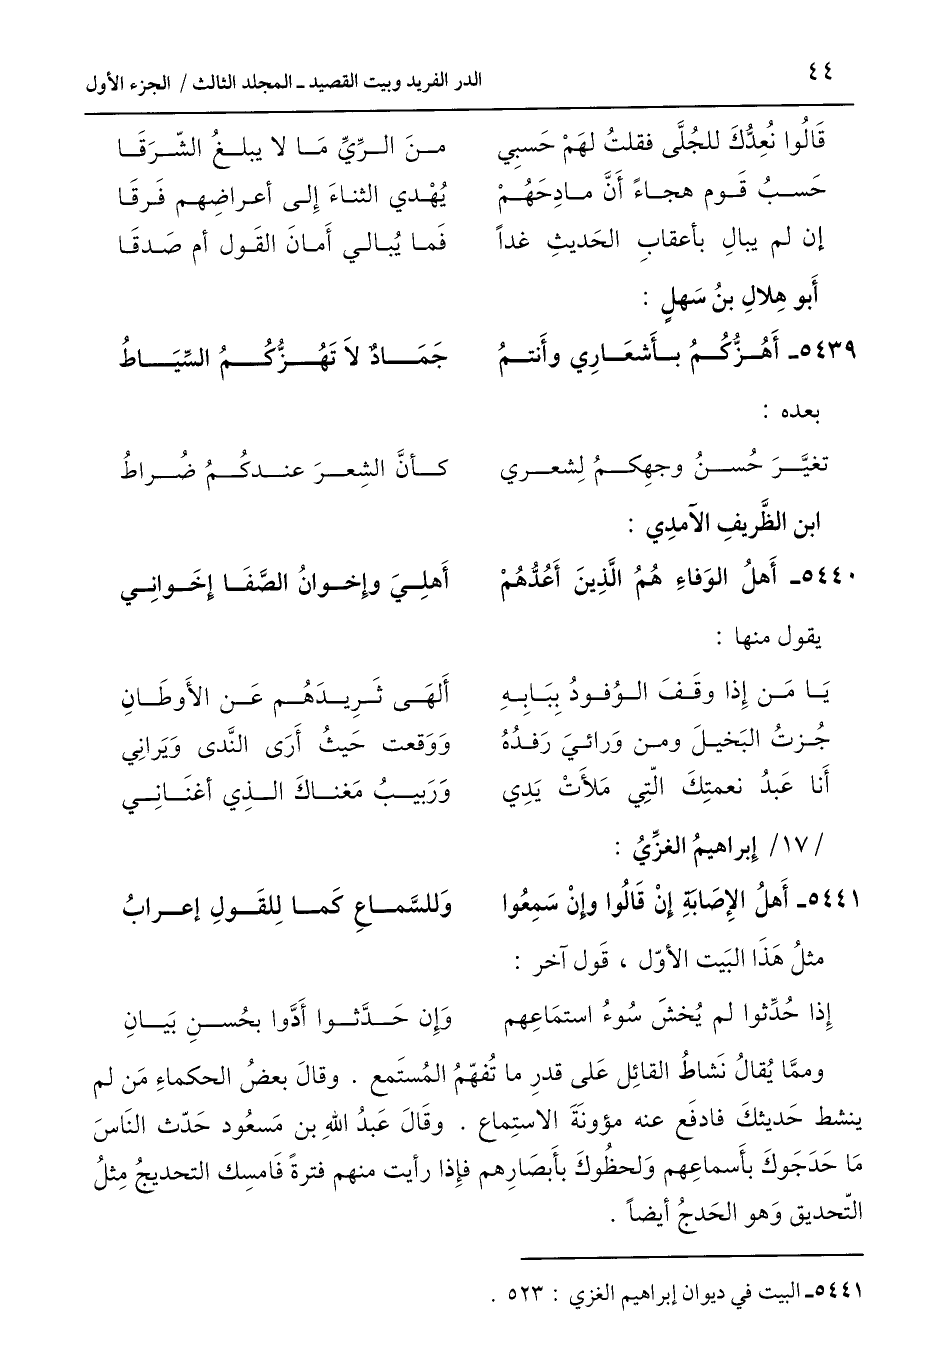 ٤٤
الدر الفريد وبيت القصيد ـ المجلد الثالث / الجزء الأول
قَالُوا نُعِدُّكَ للجُلَّى فقلتُ لهَمْ حَسبِي من َ الـرِّيِّ مَـا لا يبلـغُ الشَّـرَقَـا
حَسـبُ قَـوم هجـاءً أنَّ مـادِحَهُـمْ يُهْـدي الثنـاءَ إلـى أعـراضهـم فَـرقَـا
إن لـم يبـالِ بـأعقـابِ الحَديـثِ غداً فَمـا يُبَـالـي أَمـانَ القَـول أم صَـدقَـا
أَبو هِلالِ بنُ سَهلٍ :
٥٤٣٩ـ أَهُـزُّكُـمُ بـأَشعَـارِي وأَنتـمُ جَمَـادٌ لاَ تَهُـزُّكُـمُ السِّيَـاطُ
بعده :
تغيَّـرَ حُسـنُ وجهِكـمُ لِشعـري كـأنَّ الشِعـرَ عنـدكُـمُ ضُـراطُ
ابن الظَّريفِ الآمدِي :
٥٤٤٠ـ أَهلُ الوَفاءِ هُمُ الَّذِينَ أَعُدُّهُمْ أَهلِـيَ وإخـوانُ الصَّفَـا إخَـوانِـي
يقول منها :
يَـا مَـن إذا وقَـفَ الـوُفـودُ بِبَـابِـهِ أَلهَـى ثَـرِيـدَهُـم عَـن الأوطَـانِ
جُـزتُ البَخيـلَ ومـن وَرائـيَ رَفـدُهُ وَوَقعت حَيثُ أَرَى النَّدى وَيَراني
أَنا عَبدُ نعمتِكَ الّتِي مَلأَتْ يَدِي وَرَبيـبُ مَغنـاكَ الـذي أغنَـانـي
/ ١٧/ إبراهيمُ الغزِّيُّ :
٥٤٤١ـ أَهلُ الإصَابَةِ إنْ قَالُوا وإنْ سَمِعُوا وَللسَّمـاعِ كَمـا لِلقَـولِ إعـرابُ
مثلُ هَذَا البَيت الأوّل ، قَول آخر :
إذا حُدِّثوا لم يُخشَ سُوءُ استمَاعِهم وَإن حَـدَّثـوا أَدَّوا بحُسـنِ بَيَـان
وممَّا يُقالُ نَشاطُ القائِل عَلى قدرِ ما تُفهّمُ المُستَمع . وقالَ بعضُ الحكماءِ مَن لم
ينشط حَديثكَ فادفَع عنه مؤونَةَ الاستِماع . وقَالَ عَبدُ اللهِ بن مَسعُود حَدّث النَاسَ
مَا حَدَجوكَ بأسمَاعِهم وَلحظُوكَ بأبصَارهم فإذا رأيت منهم فترةً فَامسِك التحديجُ مِثلُ
التّحديق وَهو الحَدجُ أيضاً .
٥٤٤١ـ البيت في ديوان إبراهيم الغزي : ٥٢٣ .